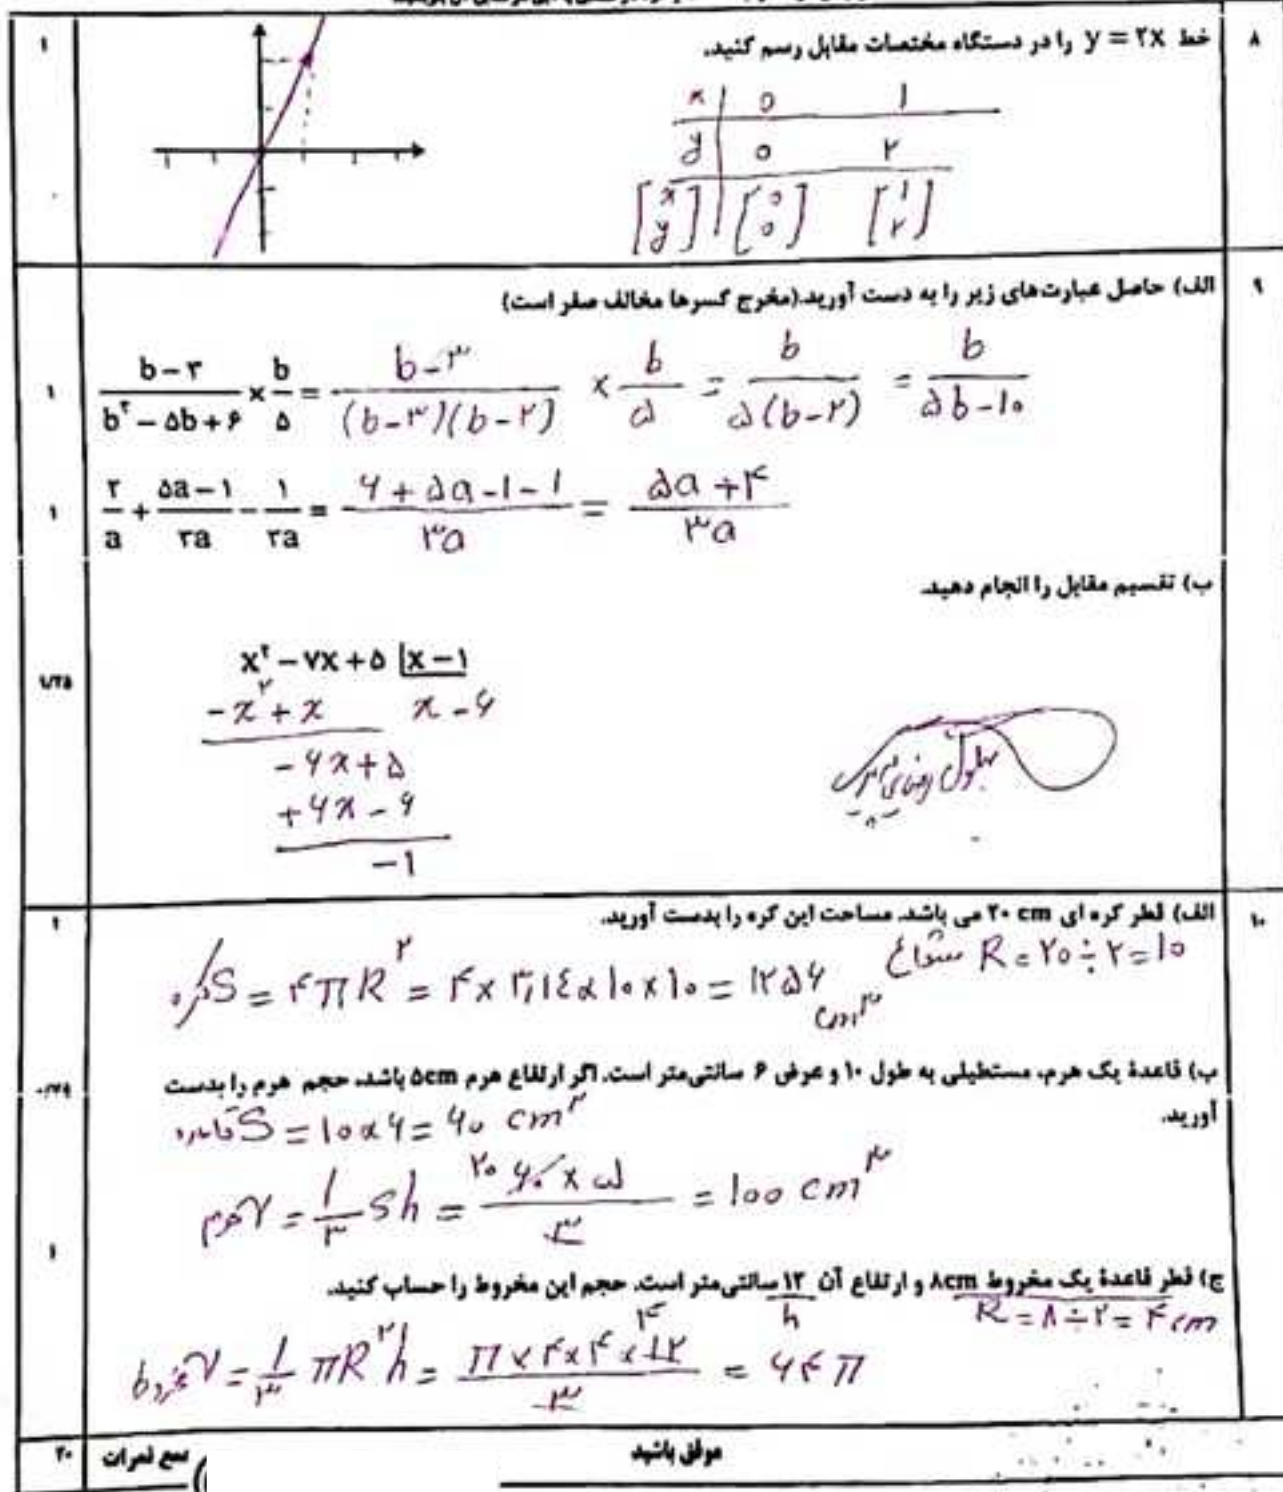 ۸ خط y = ۲x را در دستگاه مختصات مقابل رسم کنید. ۱
x | 0 1
y | 0 ۲
[x y] [0 0] [1 ۲]
۹ الف) حاصل عبارت‌های زیر را به دست آورید.(مخرج کسرها مخالف صفر است)
(b-۳)/(b^۲-۵b+۶) × b/۵ = (b-۳)/((b-۳)(b-۲)) × b/۵ = b/(۵(b-۲)) = b/(۵b-۱۰) ۱
۲/a + (۵a-۱)/۳a - ۱/۳a = (۶+۵a-۱-۱)/۳a = (۵a+۴)/۳a ۱
ب) تقسیم مقابل را انجام دهید.
x^۲ - ۷x + ۵ | x - ۱
-x^۲ + x x - ۶
-۶x + ۵
+۶x - ۶
-۱
۱/۲۵
۱۰ الف) قطر کره ای ۲۰ cm می باشد. مساحت این کره را بدست آورید. ۱
شعاع R = ۲۰ ÷ ۲ = ۱۰
کره S = ۴πR^۲ = ۴ × ۳٫۱٤ × ۱۰ × ۱۰ = ۱۲۵۶ cm^۲
ب) قاعدهٔ یک هرم، مستطیلی به طول ۱۰ و عرض ۶ سانتی‌متر است. اگر ارتفاع هرم ۵cm باشد، حجم هرم را بدست
آورید.
قاعده S = ۱۰ × ۶ = ۶۰ cm^۲
هرم V = ۱/۳ Sh = (۶۰ × ۵)/۳ = ۱۰۰ cm^۳
۲۰
ج) قطر قاعدهٔ یک مخروط ۸cm و ارتفاع آن ۱۲ سانتی‌متر است. حجم این مخروط را حساب کنید. ۱
h R = ۸ ÷ ۲ = ۴ cm
مخروط V = ۱/۳ πR^۲h = (π × ۴ × ۴ × ۱۲)/۳ = ۶۴π
۴
موفق باشید
جمع نمرات ۲۰